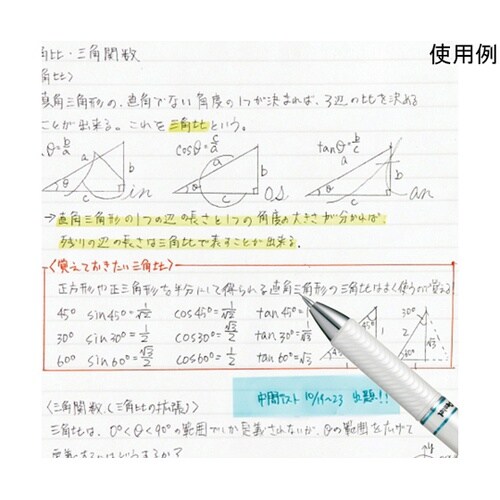 使用例
角比・三角関数
角比〉
直角三角形の、直角でない角度の1つが決まれば、3辺の比を決める
ことが出来る。これを三角比という。
sinθ=b/a cosθ=c/a tanθ=b/c
a b c θ in
a b c θ os
a b c θ an
→直角三角形の1つの辺の長さと1つの角度の大きさが分かれば、
残りの辺の長さは三角比で表すことが出来る。
〈覚えておきたい三角比〉
正方形や正三角形を半分にして得られる直角三角形の三角比はよく使うので覚える!
45° sin45°=1/√2 cos45°=1/√2 tan45°=1
30° sin30°=1/2 cos30°=√3/2 tan30°=
60° sin60°=√3/2 cos60°=1/2 tan60°=√3
45° 1
30° 2 √3
中間テスト 10/19〜23 出題!!
〈三角関数(三角比の拡張)〉
三角比は、0°<θ<90°の範囲でしか定義されないが、θの範囲を広げて